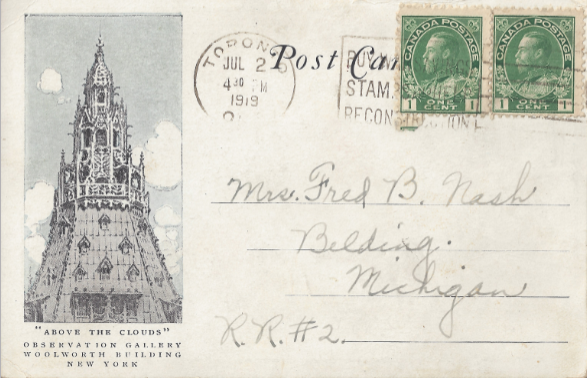 Post Car
TORONTO
JUL 2
4 30 PM
1919
STAM
RECON
CANADA POSTAGE
1 ONE CENT 1
CANADA POSTAGE
1 ONE CENT 1
Mrs. Fred B. Nash
Belding.
Michigan
R.R. #2.
"ABOVE THE CLOUDS"
OBSERVATION GALLERY
WOOLWORTH BUILDING
NEW YORK